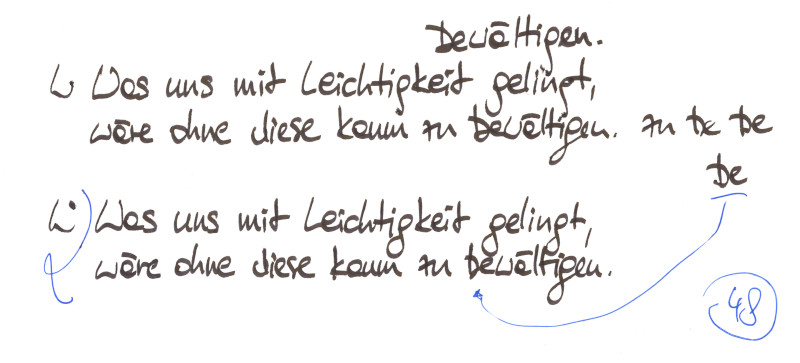 bewältigen.
Was uns mit Leichtigkeit gelingt,
wäre ohne diese kaum zu bewältigen. zu be be
be
Was uns mit Leichtigkeit gelingt,
wäre ohne diese kaum zu bewältigen.
48